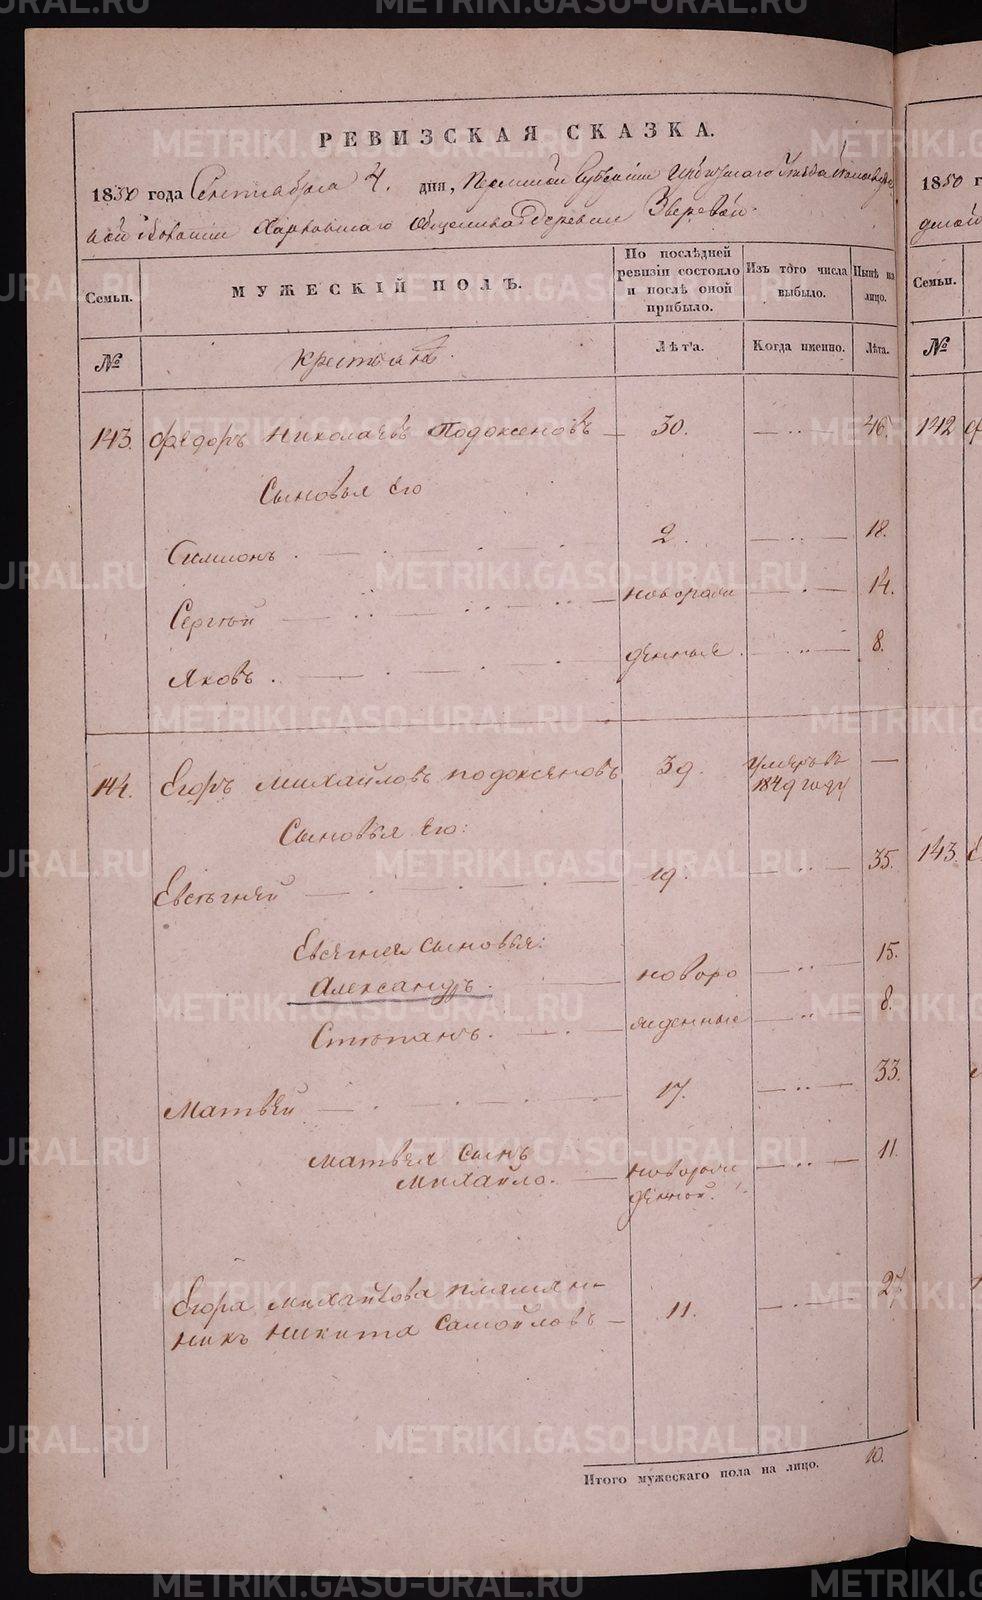 РЕВИЗСКАЯ СКАЗКА.
1850 года Сентября 4. дня, Пермской Губернии Ирбитскаго Уѣзда
Харловскаго Общества Деревни Зверевой.
Семьи.
МУЖЕСКІЙ ПОЛЪ.
По послѣдней ревизіи состояло и послѣ оной прибыло.
Изъ того числа выбыло.
Нынѣ на лицо.
№
крестьяне.
Лѣта.
Когда именно.
Лѣта.
143. Федоръ Николаевъ Подоксеновъ 30. 46.
Сыновья его
Симионъ. 2. 18.
Сергѣй новорож 14.
Яковъ. денные. 8.
144. Егоръ Михайловъ Подоксеновъ 39. Умеръ въ 1849 году
Сыновья его:
Евстигней 19. 35.
Евсигнея сыновья:
Александръ. новоро 15.
Степанъ. жденные 8.
Матвей 17. 33.
Матвея сынъ
Михайло. новорож денной. 11.
Егора Михайлова племян
никъ Никита Самойловъ 11. 27.
Итого мужескаго пола на лицо. 10.
1850 г
Семьи.
№
142 Ф
143. Е
METRIKI.GASO-URAL.RU